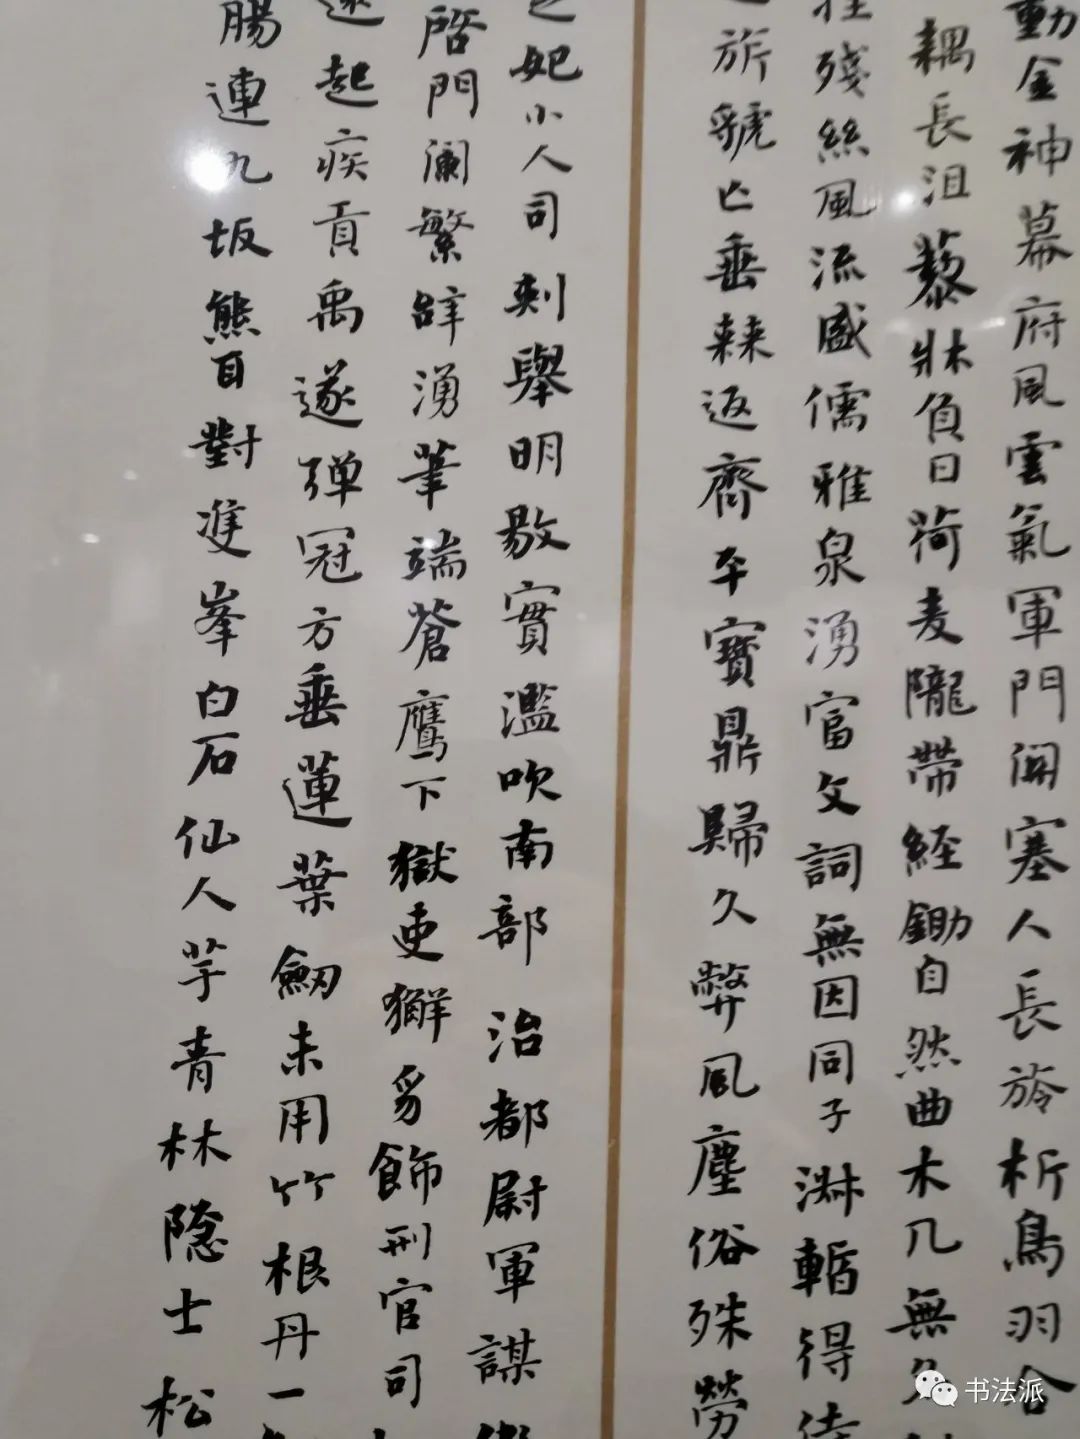 動金神幕府風雲氣軍門關塞人長旍析鳥羽合
耦長沮藜牀負日荷麦隴帶經鋤自然曲木几無
殘絲風流盛儒雅泉湧富文詞無因同子淋暫得
旂虢亡垂棘返齊平寶鼎歸久弊風塵俗殊勞
妃小人司剡舉明敭實濫吹南部治都尉軍謀
啓門瀾繁辭湧筆端蒼鷹下獄吏獬豸飾刑官司
起疾貢禹遂弹冠方垂蓮葉劒未用竹根丹一
腸連九坂熊耳對雙峯白石仙人芋青林隐士松
书法派